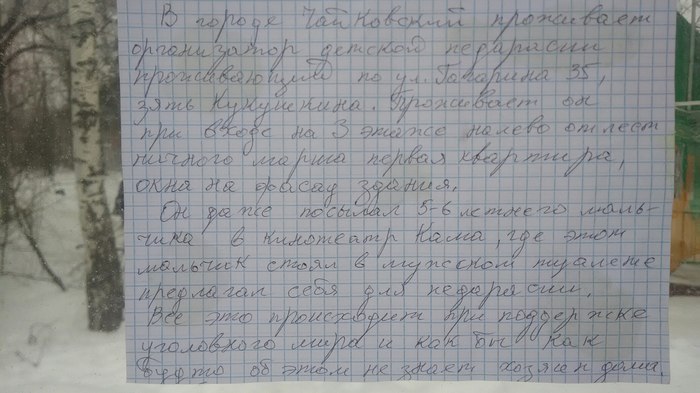 В городе Чайковский проживает
организатор детской педарасии
проживающий по ул. Гагарина 35,
зять Кукушкина. Проживает он
при входе на 3 этаже налево от лест
ничного марша первая квартира,
окна на фасад здания.
Он даже посылал 5-6 летнего маль-
чика в кинотеатр Кама, где этот
мальчик стоял в мужском туалете
предлагал себя для педарасии.
Все это происходит при поддержке
уголовного мира и как бы как
будто об этом не знает хозяин дома.